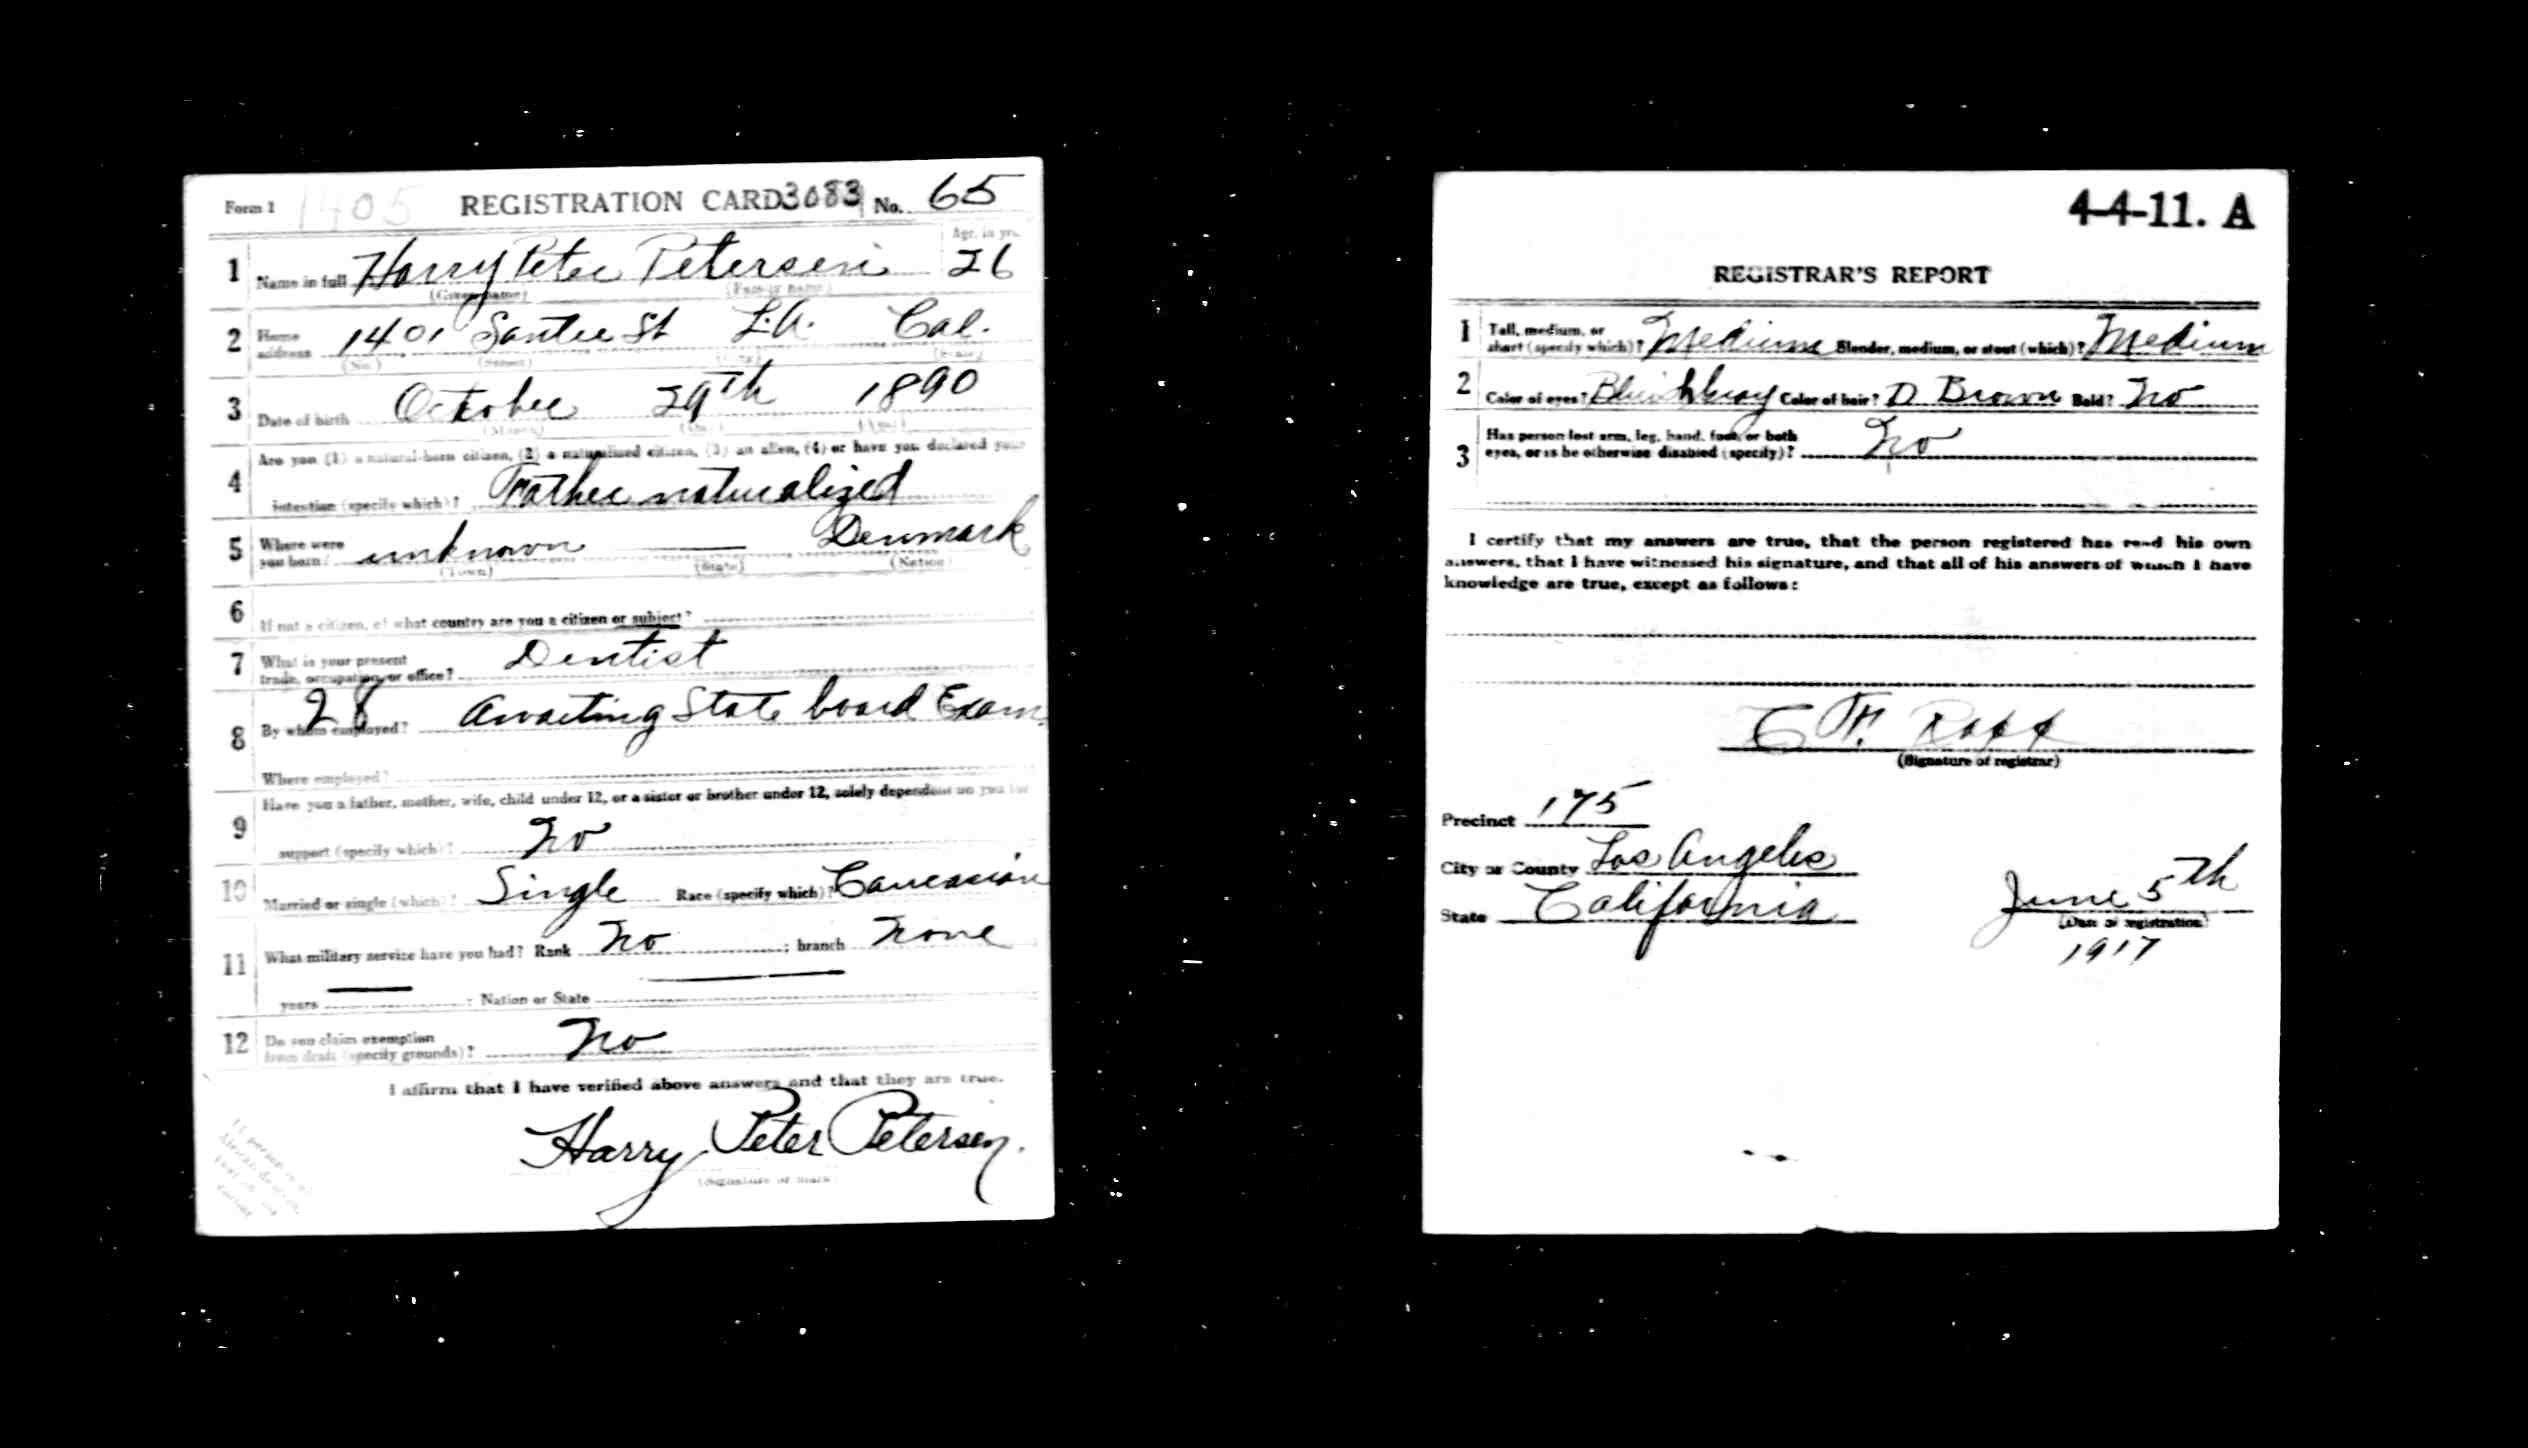 Form 1 1405 REGISTRATION CARD 3083 No. 65
Age, in yrs.
1 Name in full Harry Peter Petersen 26
(Given name) (Family name)
2 Home address 1401 Santee St L.A. Cal.
(No.) (Street) (City) (State)
3 Date of birth October 29th 1890
(Month) (Day) (Year)
4 Are you (1) a natural-born citizen, (2) a naturalized citizen, (3) an alien, (4) or have you declared your
intention (specify which)? Father naturalized
5 Where were you born? unknown Denmark
(Town) (State) (Nation)
6 If not a citizen, of what country are you a citizen or subject?
7 What is your present
trade, occupation, or office? Dentist
28
8 By whom employed? Awaiting State board Exam.
Where employed?
9 Have you a father, mother, wife, child under 12, or a sister or brother under 12, solely dependent on you for
support (specify which)? No
10 Married or single (which)? Single Race (specify which)? Caucasian
11 What military service have you had? Rank No ; branch None
years ; Nation or State
12 Do you claim exemption
from draft (specify grounds)? No
I affirm that I have verified above answers and that they are true.
Harry Peter Petersen.
(Signature or mark)
4-4-11. A
REGISTRAR'S REPORT
1 Tall, medium, or
short (specify which)? Medium Slender, medium, or stout (which)? Medium
2 Color of eyes? Color of hair? D Brown Bald? No
3 Has person lost arm, leg, hand, foot, or both
eyes, or is he otherwise disabled (specify)? No
I certify that my answers are true, that the person registered has read his own
answers, that I have witnessed his signature, and that all of his answers of which I have
knowledge are true, except as follows:
(Signature of registrar)
Precinct 175
City or County Los Angeles
State California
June 5th
(Date of registration)
1917